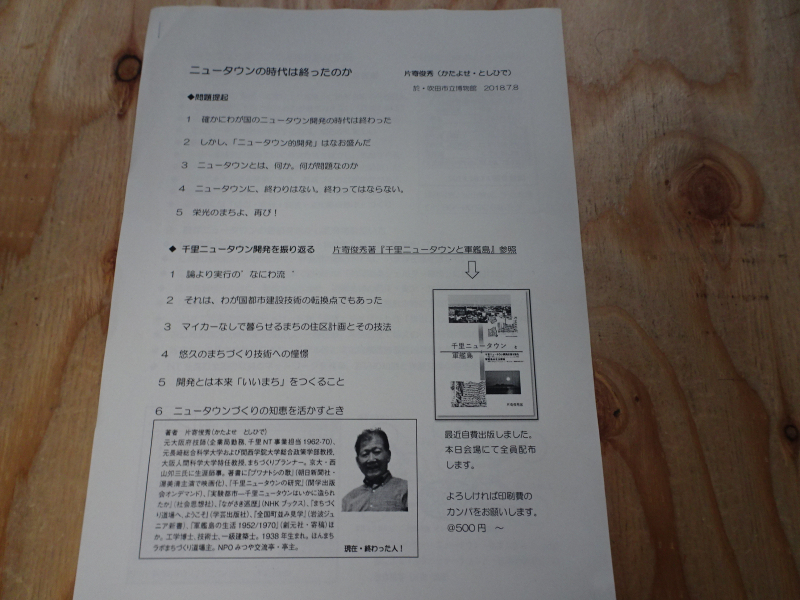 ニュータウンの時代は終ったのか
片寄俊秀（かたよせ・としひで）
於・吹田市立博物館 2018.7.8
◆問題提起
1 確かにわが国のニュータウン開発の時代は終わった
2 しかし、「ニュータウン的開発」はなお盛んだ
3 ニュータウンとは、何か。何が問題なのか
4 ニュータウンに、終わりはない。終わってはならない。
5 栄光のまちよ、再び！
◆ 千里ニュータウン開発を振り返る 片寄俊秀著『千里ニュータウンと軍艦島』参照
1 論より実行の゛なにわ流゛
2 それは、わが国都市建設技術の転換点でもあった
3 マイカーなしで暮らせるまちの住区計画とその技法
4 悠久のまちづくり技術への憧憬
5 開発とは本来「いいまち」をつくること
6 ニュータウンづくりの知恵を活かすとき
千里ニュータウン
軍艦島
著者 片寄俊秀（かたよせ としひで）
元大阪府技師（企業局勤務、千里NT事業担当1962-70）、
元長崎総合科学大学および関西学院大学総合政策学部教授、
大阪人間科学大学特任教授、まちづくりプランナー。京大・西
山夘三氏に生涯師事。著書に『ブワナトシの歌』（朝日新聞社・
渥美清主演で映画化）、『千里ニュータウンの研究』（関学出版
会オンデマンド）、『実験都市―千里ニュータウンはいかに造られ
たか』（社会思想社）、『ながさき巡歴』（NHKブックス）、『まちづく
り道場へ、ようこそ』（学芸出版社）、『全国町並み見学』（岩波ジュ
ニア新書）、『軍艦島の生活1952/1970』（創元社・寄稿）ほ
か。工学博士、技術士、一級建築士。1938年生まれ。ほんまち
ラボまちづくり道場主。NPOみつや交流亭・亭主。
現在・終わった人！
最近自費出版しました。
本日会場にて全員配布
します。
よろしければ印刷費の
カンパをお願いします。
＠500円 ～